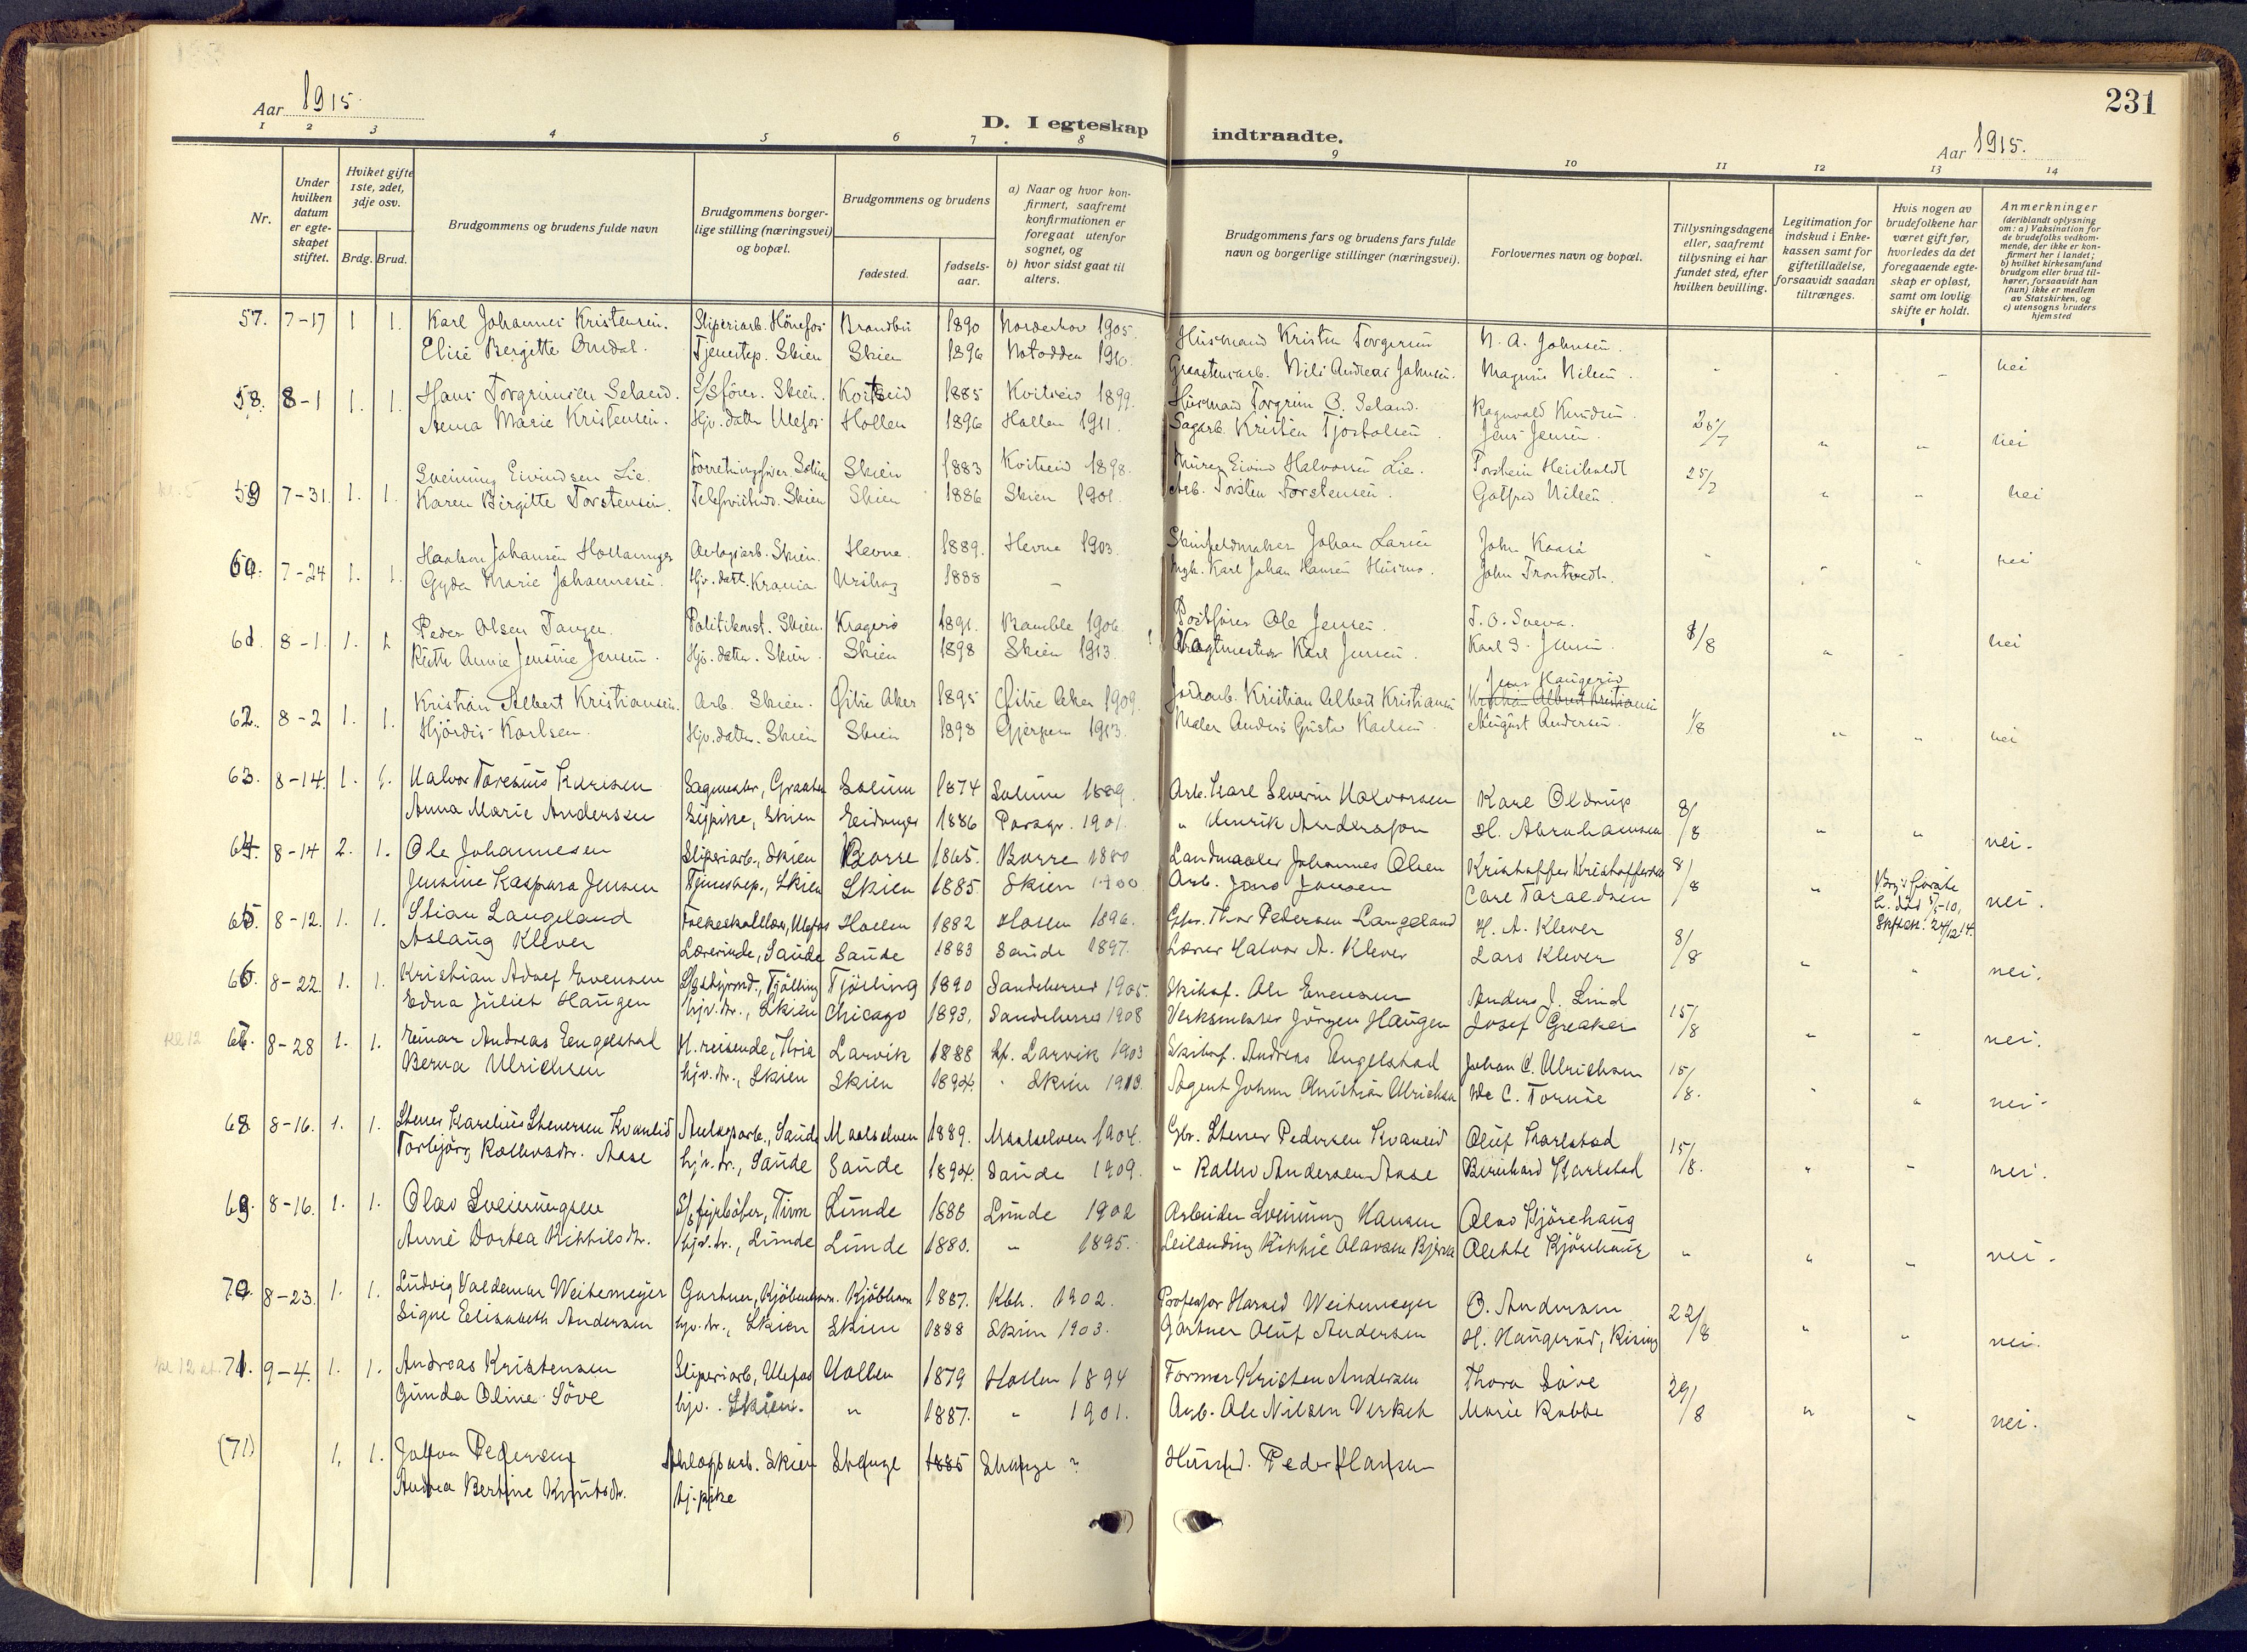 231
Aar 1915.
D. I egteskap indtraadte.
Aar 1915.
1 2 3 4 5 6 7 8 9 10 11 12 13 14
Nr.
Under hvilken datum er egteskapet stiftet.
Hviket gifte 1ste, 2det, 3dje osv.
Brdg. Brud.
Brudgommens og brudens fulde navn
Brudgommens borgerlige stilling (næringsvei) og bopæl.
Brudgommens og brudens
fødested.
fødselsaar.
a) Naar og hvor konfirmert, saafremt konfirmationen er foregaat utenfor sognet, og
b) hvor sidst gaat til alters.
Brudgommens fars og brudens fars fulde navn og borgerlige stillinger (næringsvei).
Forlovernes navn og bopæl.
Tillysningsdagene eller, saafremt tillysning ei har fundet sted, efter hvilken bevilling.
Legitimation for indskud i Enkekassen samt for giftetilladelse, forsaavidt saadan tiltrænges.
Hvis nogen av brudefolkene har været gift før, hvorledes da det foregaaende egteskap er opløst, samt om lovlig skifte er holdt.
Anmerkninger
(deriblandt oplysning om: a) Vaksination for de brudefolks vedkommende, der ikke er konfirmert her i landet; b) hvilket kirkesamfund brudgom eller brud tilhører, forsaavidt han (hun) ikke er medlem av Statskirken, og c) utensogns bruders hjemsted
57. 7-17 1 1. Karl Johannes Kristensen. Sliperiarb. Hönefos Brandbu 1890 Norderhov 1905. Husmand Kristen Torgersen N. A. Johnsen.
Elise Bergitte Omdal. Tjenestep. Skien Skien 1896 Notodden 1910. Graastensarb. Nils Andreas Johnsen. Magnus Nilsen. " " " nei
58. 8-1 1. 1. Hans Torgrimsen Seland. Skien. Kvitseid 1885 Kvitseid 1899. Husmand Torgrim O. Seland. Ragnvald Knudsen.
Anna Marie Kristensen. Hjv. datter Ulefos Hollen 1896 Hollen 1911. Sagarb. Kristen Tjostolsen. Jens Jensen. 25/7 " " nei
59 7-31. 1. 1. Sveinung Eivindsen Lie. Skien 1883 Kvitseid 1898. Murer Eivind Halvorsen Lie. 25/7
Karen Birgitte Torstensen. Skien Skien 1886 Skien 1901. Arb. Torsten Torstensen. Gotfred Nilsen. " " nei
60. 7-24 1. 1. Johansen Anlægsarb. Skien. Hevne. 1889. Hevne 1903. Johan Larsen John Kaasa
Gyda Marie Johannesen. Hjv. datt. Kragerø 1888 — Karl Johan Hansen John Trontvedt. " " " nei
61 8-1. 1. 1. Peder Olsen Tangen. Politikonst. Skien. Kragerö 1891. Bamble 1906. Postfører Ole Jensen.
Ruth Annie Jensine Jensen. Hjv. datter. Skien. Skien 1898 Skien 1913. Vagtmester Karl Jensen. Karl S. Jensen 1/8 " " nei
62. 8-2 1. 1. Kristian Albert Kristiansen. Arb. Skien. Östre Aker 1895 Östre Aker 1909. Jordarb. Kristian Albert Kristiansen Jens Haugerød
Kristian Albert Kristiansen
Hjördis Karlsen. Hjv. datter. Skien Skien 1898 Gjerpen 1913. Maler Anders Gustav Karlsen. August Andersen. 1/8 " " nei
63. 8-14. 1. 1. Halvor Karlsen Sagmester, Graaten Solum 1874 Solum 1889. Arb. Karl Severin Halvorsen Karl Oldrup 8/8
Anna Marie Andersen Sypike, Skien Eidanger 1886 Porsgr. 1901. " Henrik Andersson H. Abrahamsen " " nei.
64. 8-14 2. 1. Ole Johannesen Sliperiarb., Skien Borre 1865. Borre 1880 Landmaaler Johannes Olsen Kristoffer Kristoffersen 8/8
Jensine Kaspara Jensen Tjenestep., Skien Skien 1885 Skien 1900 Arb. Jens Jensen Carl Taraldsen " nei.
65. 8-12. 1. 1. Stian Langeland Folkeskolelær, Ulefos Hollen 1882 Hollen 1896. Gbr. Thor Pedersen Langeland H. A. Klever 8/8
Aslaug Klever Lærerinde, Saude Saude 1883 Saude 1897. Lærer Halvor A. Klever Lars Klever " " nei.
66. 8-22. 1. 1. Kristian Adolf Evensen S/S styrmd., Tjölling Tjölling 1890 Sandeherred 1905. Skibsf. Ole Evensen Anders J. Lind 15/8
Edna Juliet Haugen hjv. dr., Skien Chicago 1893. Sandeherred 1908 Verksmester Jörgen Haugen Josef Greaker " " nei.
kl 12 67. 8-28 1. 1. Einar Andreas Engelstad H. reisende, Kria Larvik 1888 Larvik 1903 Skibsf. Andreas Engelstad Johan C. Ulrichsen 15/8.
Berna Ulrichsen hjv. dr., Skien Skien 1894. " Skien 1913. Agent Johan Christian Ulrichsen C. Tornöe " " nei.
68. 8-16. 1. 1. Stener Karelius Stenersen Kvamlid Anlægsarb., Saude Maalselven 1889. Maalselven 1904. Gbr. Stener Pedersen Kvamlid Oluf Karlstad 15/8.
Torbjörg Rolleivsdtr. Aase hjv. dr., Saude Saude 1894. Saude 1909. " Andersen Aase Bernhard Karlstad " " nei.
69. 8-16. 1. 1. Olav Sveinungsen S/S fyrböter, Tinn Lunde 1886 Lunde 1902 Arbeider Sveinung Hansen Olav Kjösehaug
Anne Dortea Kittilsdtr. hjv. dr., Lunde Lunde 1880. " 1895. Leilending Kittil Olavsen Alette Kjösehaug " " " nei.
70. 8-23. 1. 1. Ludvig Valdemar Weitemeyer Gartner, Kjöbenhavn. Kjöbhavn 1887. Kbh. 1902. Professor Harald Weitemeyer O. Andersen 22/8
Signe Elisabeth Andersen hjv. dr., Skien Skien 1888 Skien 1903. Gartner Oluf Andersen H. Haugerud, Rising " " nei.
kl 12 71. 9-4. 1. 1. Andreas Kristensen Sliperiarb, Ulefos Hollen 1879 Hollen 1894 Former Kristen Andersen Thora Söve 29/8
Gunda Oline Söve hjv. Skien. " 1887. " 1901. Arb. Ole Nilsen Verket Marie Rabbe " " nei.
(71) 1. 1. Johan Pedersen Anlægsarb. Skien Stange 1885 Stange ? Husmd. Peder Hansen
Andrea Bertine Knutsdtr. tj.pike